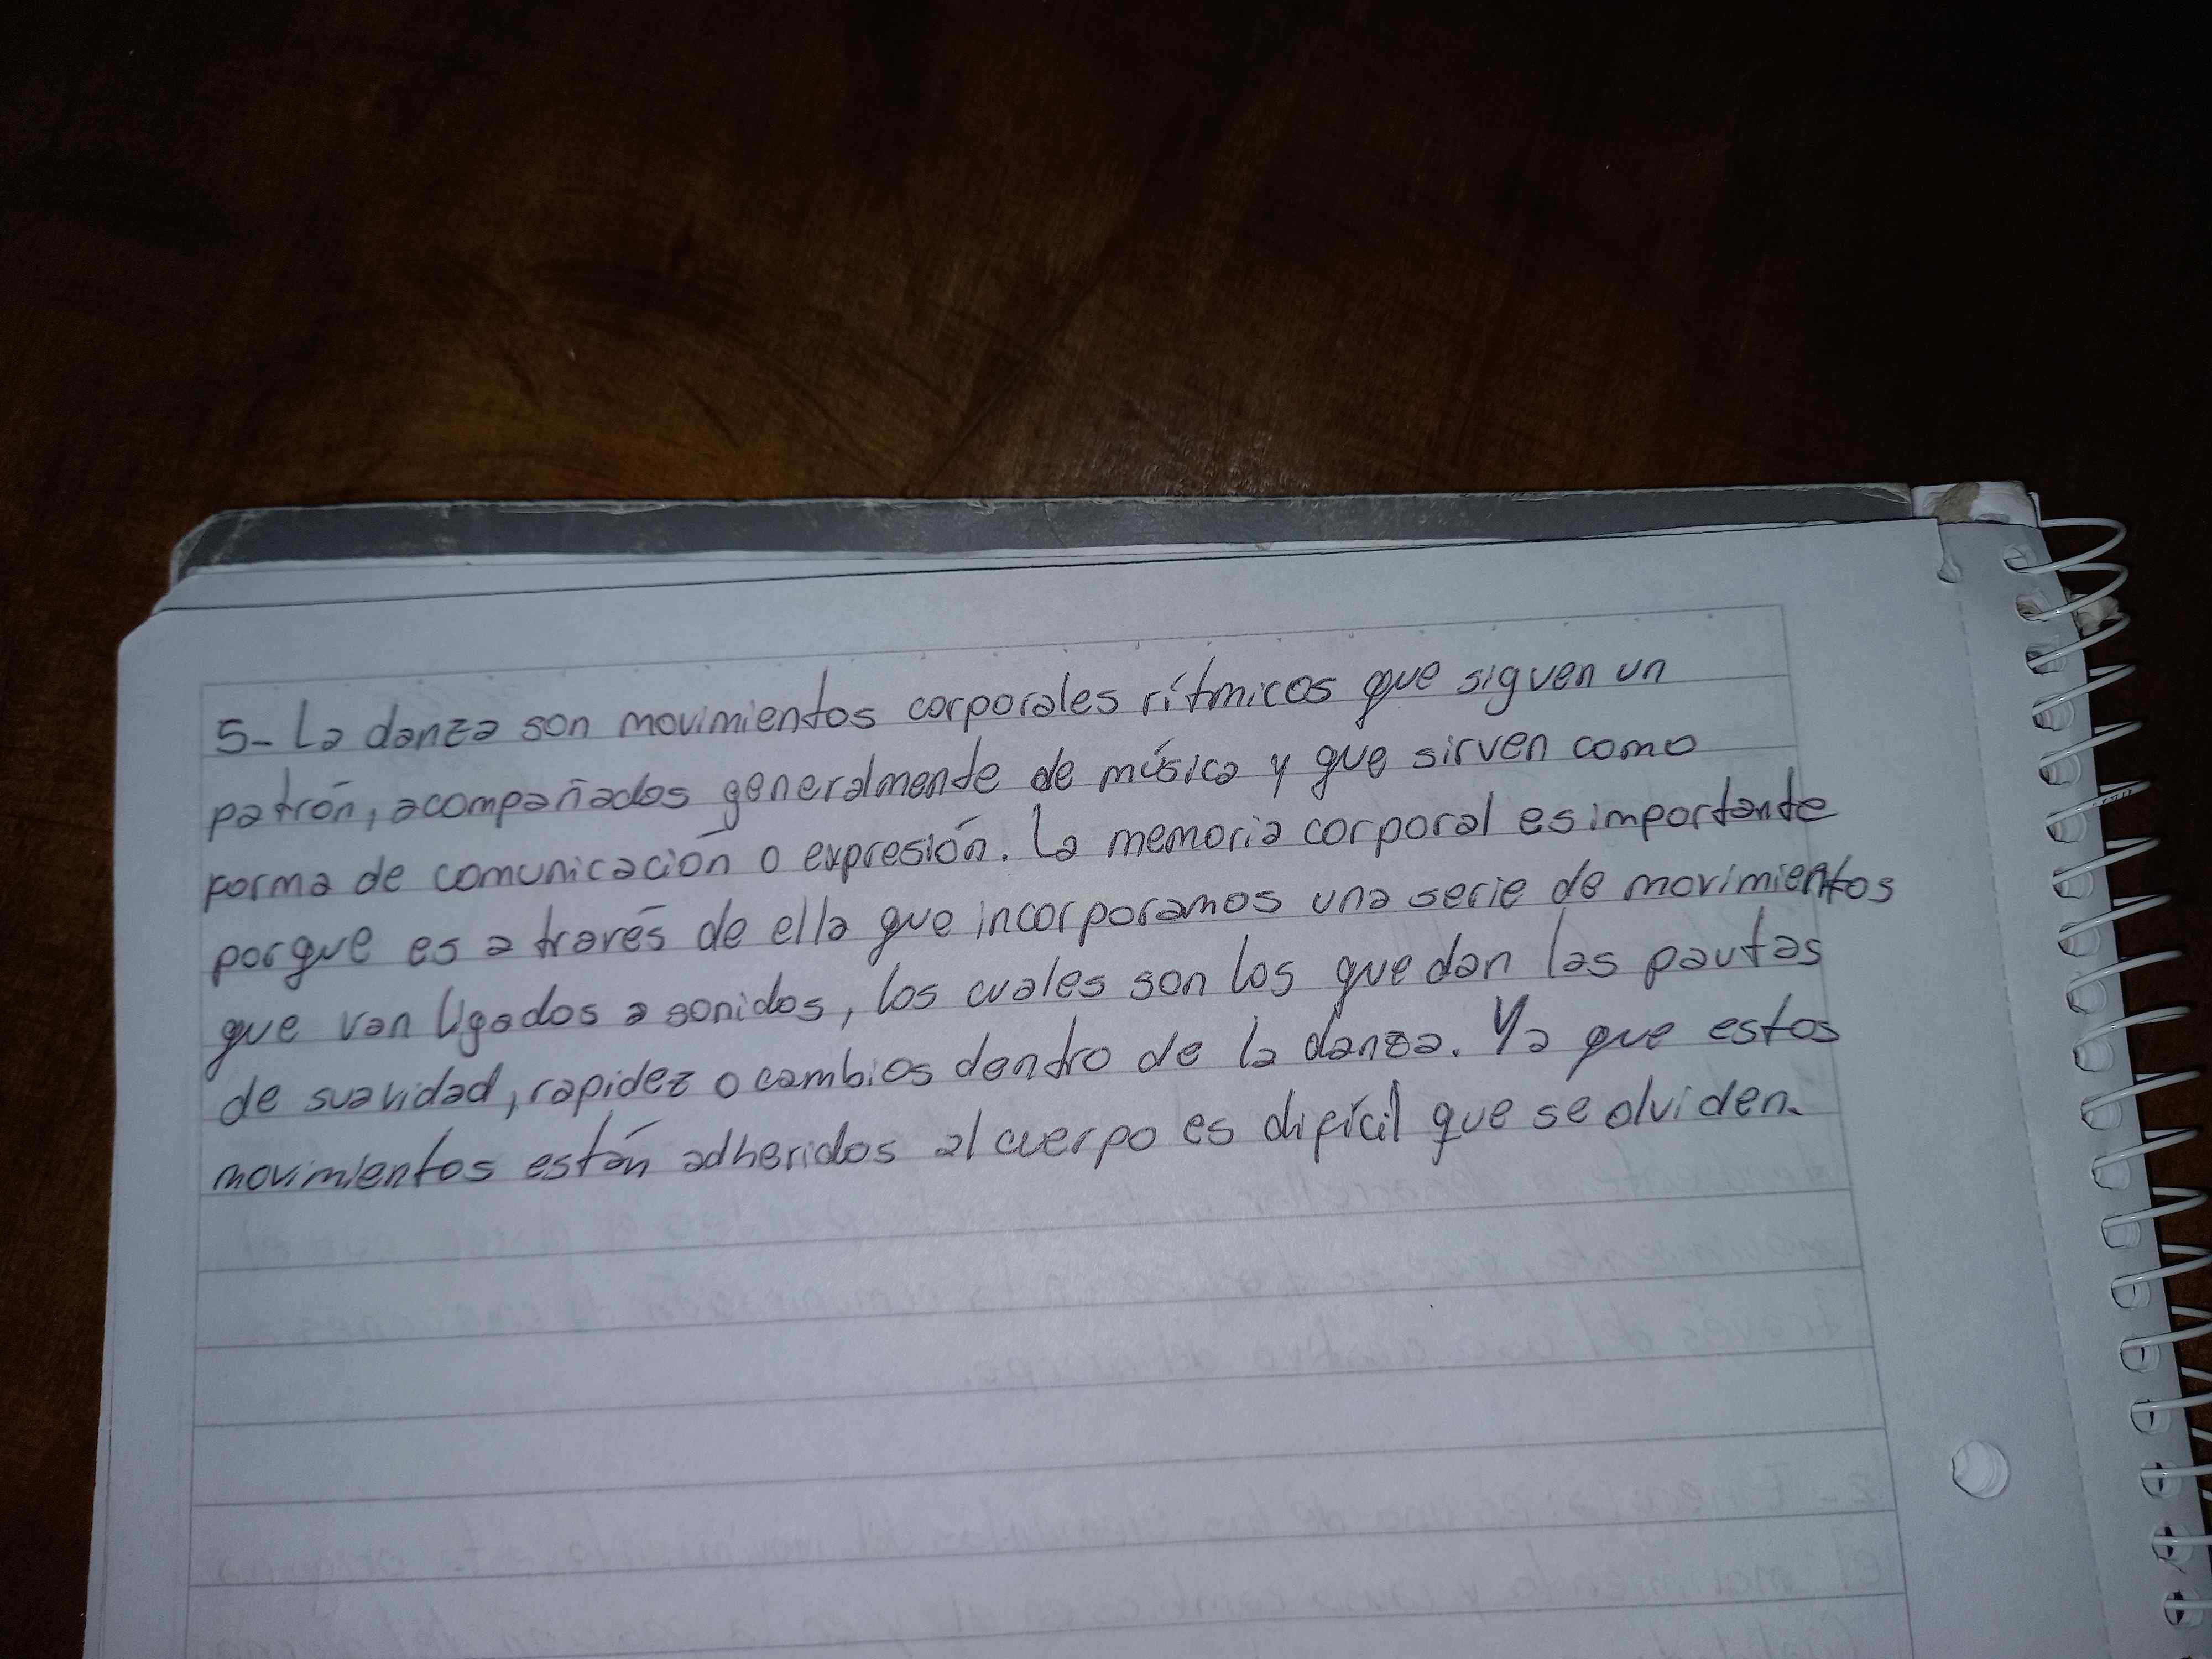 5- La danza son movimientos corporales rítmicos que siguen un
patrón, acompañados generalmente de música y que sirven como
forma de comunicación o expresión. La memoria corporal es importante
porque es a través de ella que incorporamos una serie de movimientos
que van ligados a sonidos, los cuales son los que dan las pautas
de suavidad, rapidez o cambios dentro de la danza. Ya que estos
movimientos están adheridos al cuerpo es difícil que se olviden.